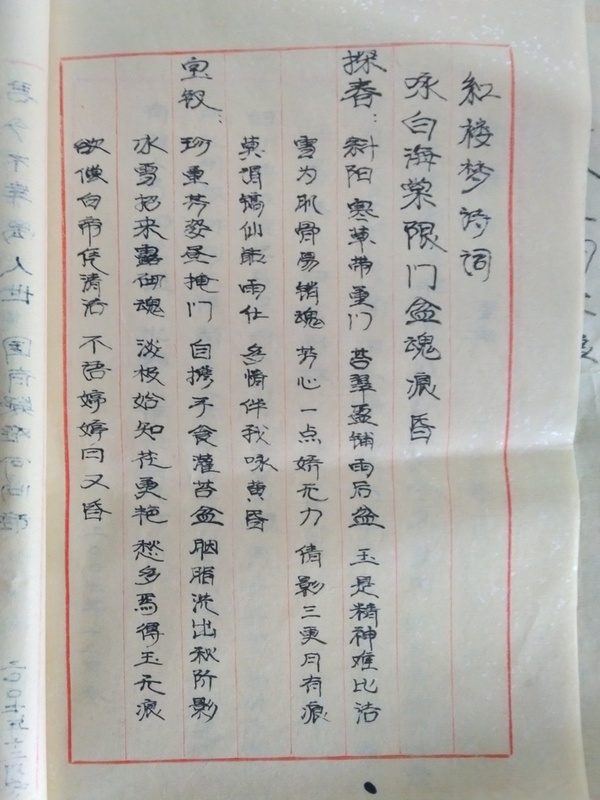 红楼梦诗词
咏白海棠限门盆魂痕昏
探春：斜阳寒草带重门 苔翠盈铺雨后盆 玉是精神难比洁
雪为肌骨易销魂 芳心一点娇无力 倩影三更月有痕
莫谓缟仙 雨 多情伴我咏黄昏
宝钗：珍重芳姿昼掩门 自携手 灌苔盆 胭脂洗出秋阶影
冰雪招来露砌魂 淡极始知花更艳 愁多焉得玉无痕
欲偿白帝凭清洁 不语婷婷日又昏